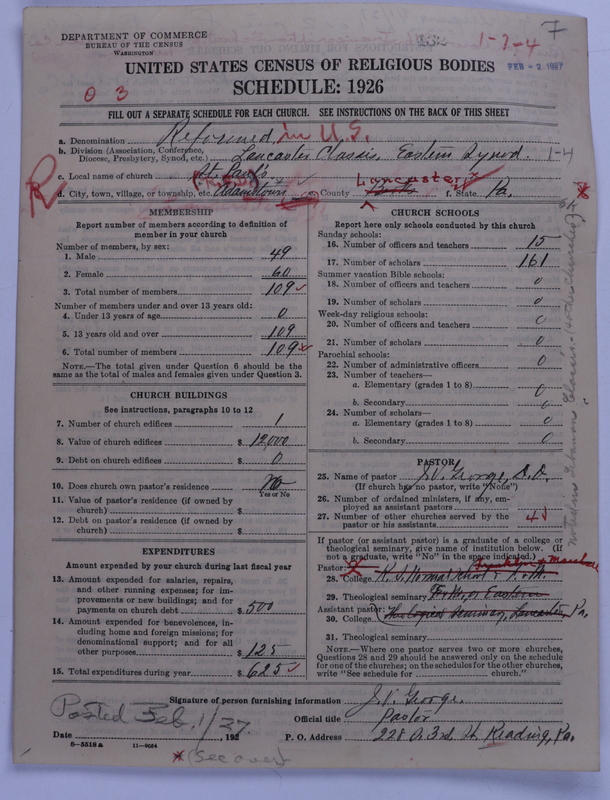 DEPARTMENT OF COMMERCE
BUREAU OF THE CENSUS
WASHINGTON
1-7-4
7
FEB - 2 1927
UNITED STATES CENSUS OF RELIGIOUS BODIES
SCHEDULE: 1926
0 3
FILL OUT A SEPARATE SCHEDULE FOR EACH CHURCH. SEE INSTRUCTIONS ON THE BACK OF THIS SHEET
a. Denomination Reformed in U.S.
b. Division (Association, Conference, Diocese, Presbytery, Synod, etc.) Lancaster Classis, Eastern Synod. 1-4
c. Local name of church St. Paul's
d. City, town, village, or township, etc. Adamstown County Lancaster f. State Pa.
R
MEMBERSHIP
Report number of members according to definition of
member in your church
Number of members, by sex:
1. Male 49
2. Female 60
3. Total number of members 109
Number of members under and over 13 years old:
4. Under 13 years of age 0
5. 13 years old and over 109
6. Total number of members 109
NOTE.—The total given under Question 6 should be
same as the total of males and females given under Question 3.
CHURCH BUILDINGS
See instructions, paragraphs 10 to 12
7. Number of church edifices 1
8. Value of church edifices $ 12,000
9. Debt on church edifices $ 0
10. Does church own pastor's residence? No
Yes or No
11. Value of pastor's residence (if owned by
church) $
12. Debt on pastor's residence (if owned by
church) $
EXPENDITURES
Amount expended by your church during last fiscal year
13. Amount expended for salaries, repairs,
and other running expenses; for im-
provements or new buildings; and for
payments on church debt $ 500
14. Amount expended for benevolences, in-
cluding home and foreign missions; for
denominational support; and for all
other purposes $ 125
15. Total expenditures during year $ 625
CHURCH SCHOOLS
Report here only schools conducted by this church
Sunday schools:
16. Number of officers and teachers 15
17. Number of scholars 161
Summer vacation Bible schools:
18. Number of officers and teachers 0
19. Number of scholars 0
Week-day religious schools:
20. Number of officers and teachers 0
21. Number of scholars 0
Parochial schools:
22. Number of administrative officers 0
23. Number of teachers—
a. Elementary (grades 1 to 8) 0
b. Secondary 0
24. Number of scholars—
a. Elementary (grades 1 to 8) 0
b. Secondary 0
PASTOR
25. Name of pastor J.V. George, D.D.
(If church has no pastor, write "None")
26. Number of ordained ministers, if any, em-
ployed as assistant pastors
27. Number of other churches served by the
pastor or his assistants
If pastor (or assistant pastor) is a graduate of a college or
theological seminary, give name of institution below. (If
not a graduate, write "No" in the space indicated.)
Pastor: Franklin & Marshall
28. College K. S. Normal School & F. & M.
29. Theological seminary
Assistant pastor:
30. College Theological Seminary, Lancaster, Pa.
31. Theological seminary
NOTE.—Where one pastor serves two or more churches,
Questions 28 and 29 should be answered only on the schedule
for one of the churches; on the schedules for the other churches,
write "See schedule for church."
Signature of person furnishing information J.V. George.
Official title Pastor
Posted Feb. 1/27.
Date , 192
P. O. Address 228 Reading, Pa.
8-5518 a 11-9084
(See over)